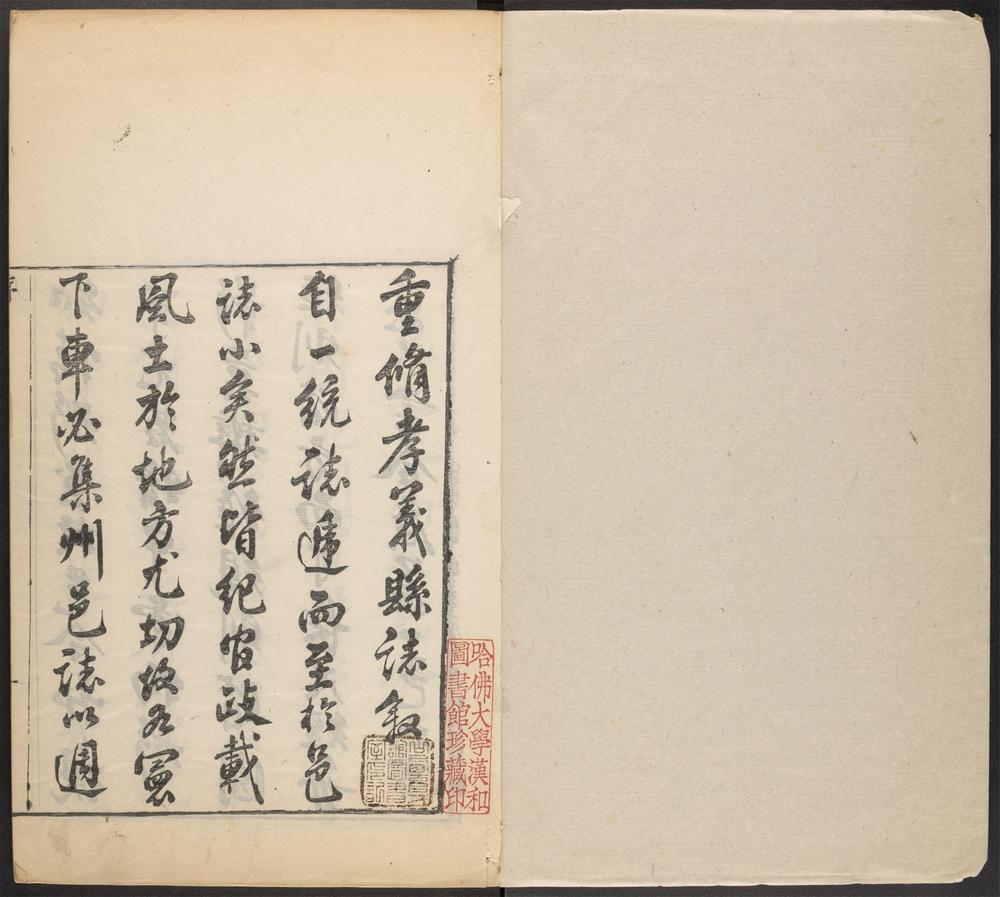 重脩孝義縣誌叙
自一統誌遞而至於邑
誌小矣然皆紀官政載
風土於地方尤切故各憲
下車必集州邑誌以週
哈佛大學漢和
圖書館珍藏印